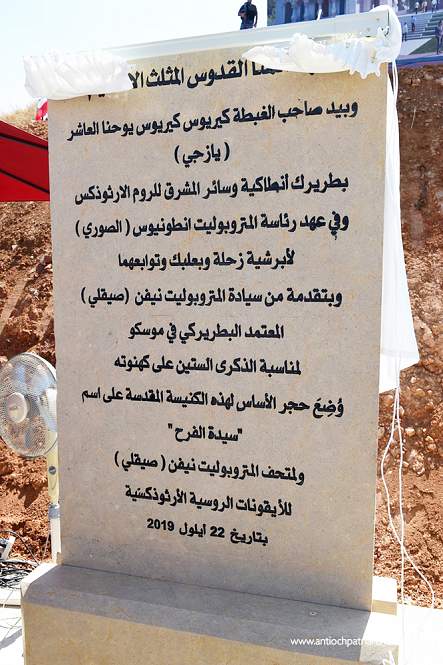 القدوس المثلث
وبيد صاحب الغبطة كيريوس كيريوس يوحنا العاشر
( يازجي )
بطريرك أنطاكية وسائر المشرق للروم الارثوذكس
وفي عهد رئاسة المتروبوليت انطونيوس ( الصوري )
لأبرشية زحلة وبعلبك وتوابعهما
وبتقدمة من سيادة المتروبوليت نيفن (صيقلي )
المعتمد البطريركي في موسكو
لمناسبة الذكرى الستين على كهنوته
وُضِعَ حجر الأساس لهذه الكنيسة المقدسة على اسم
"سيدة الفرح"
ولمتحف المتروبوليت نيفن ( صيقلي )
للأيقونات الروسية الأرثوذكسَية
بتاريخ 22 أيلول 2019